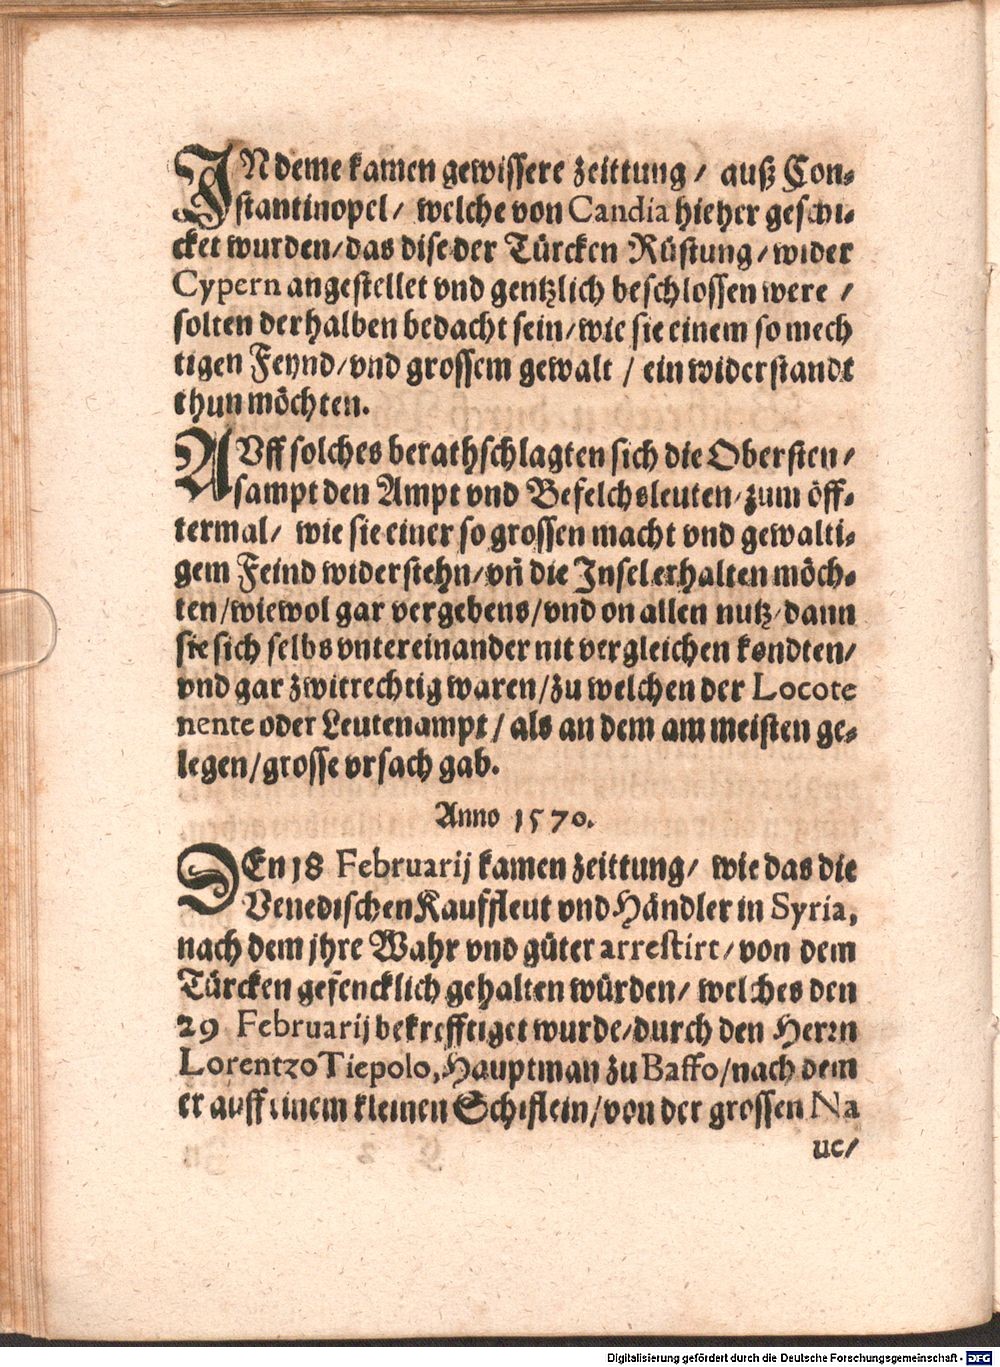 IN deme kamen gewissere zeittung / auß Con-
stantinopel / welche von Candia hieher geschi-
cket wurden / das dise der Türcken Rüstung / wider
Cypern angestellet vnd gentzlich beschlossen were /
solten derhalben bedacht sein / wie sie einem so mech
tigen Feynd / vnd grossem gewalt / ein widerstandt
thun möchten.
AVff solches berathschlagten sich die Obersten /
sampt den Ampt vnd Befelchsleuten / zum öff-
termal / wie sie einer so grossen macht vnd gewalti-
gem Feind widerstehn / vñ die Insel erhalten möch-
ten / wiewol gar vergebens / vnd on allen nutz / dann
sie sich selbs vntereinander nit vergleichen kondten /
vnd gar zwitrechtig waren / zu welchen der Locote
nente oder Leutenampt / als an dem am meisten ge-
legen / grosse vrsach gab.
Anno 1570.
DEn 18 Februarij kamen zeittung / wie das die
Venedischen Kauffleut vnd Händler in Syria,
nach dem jhre Wahr vnd güter arrestirt / von dem
Türcken gefencklich gehalten würden / welches den
29 Februarij bekrefftiget wurde / durch den Herrn
Lorentzo Tiepolo, Hauptman zu Baffo / nach dem
er auff einem kleinen Schiflein / von der grossen Na
ue /
Digitalisierung gefördert durch die Deutsche Forschungsgemeinschaft - DFG